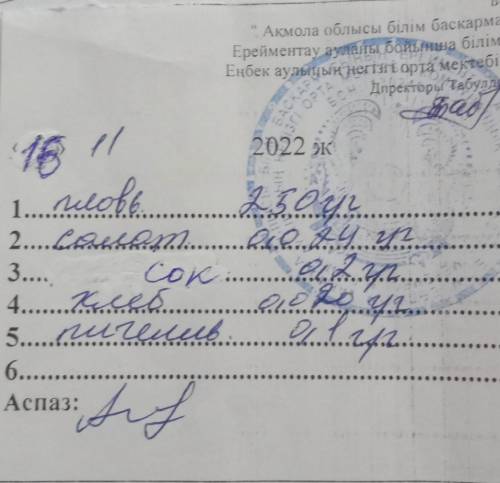 " Ақмола облысы білім басқарма
Ерейментау ауданы бойынша білім
Еңбек ауылының негізгі орта мектебі
Директоры Табулд
16 11 2022 ж
1. пловь 250 гр
2. салат 0,0.24 гр
3. сок 0,2 гр
4. хлеб 0,020 гр
5. 0,1 гр
6.
Аспаз: